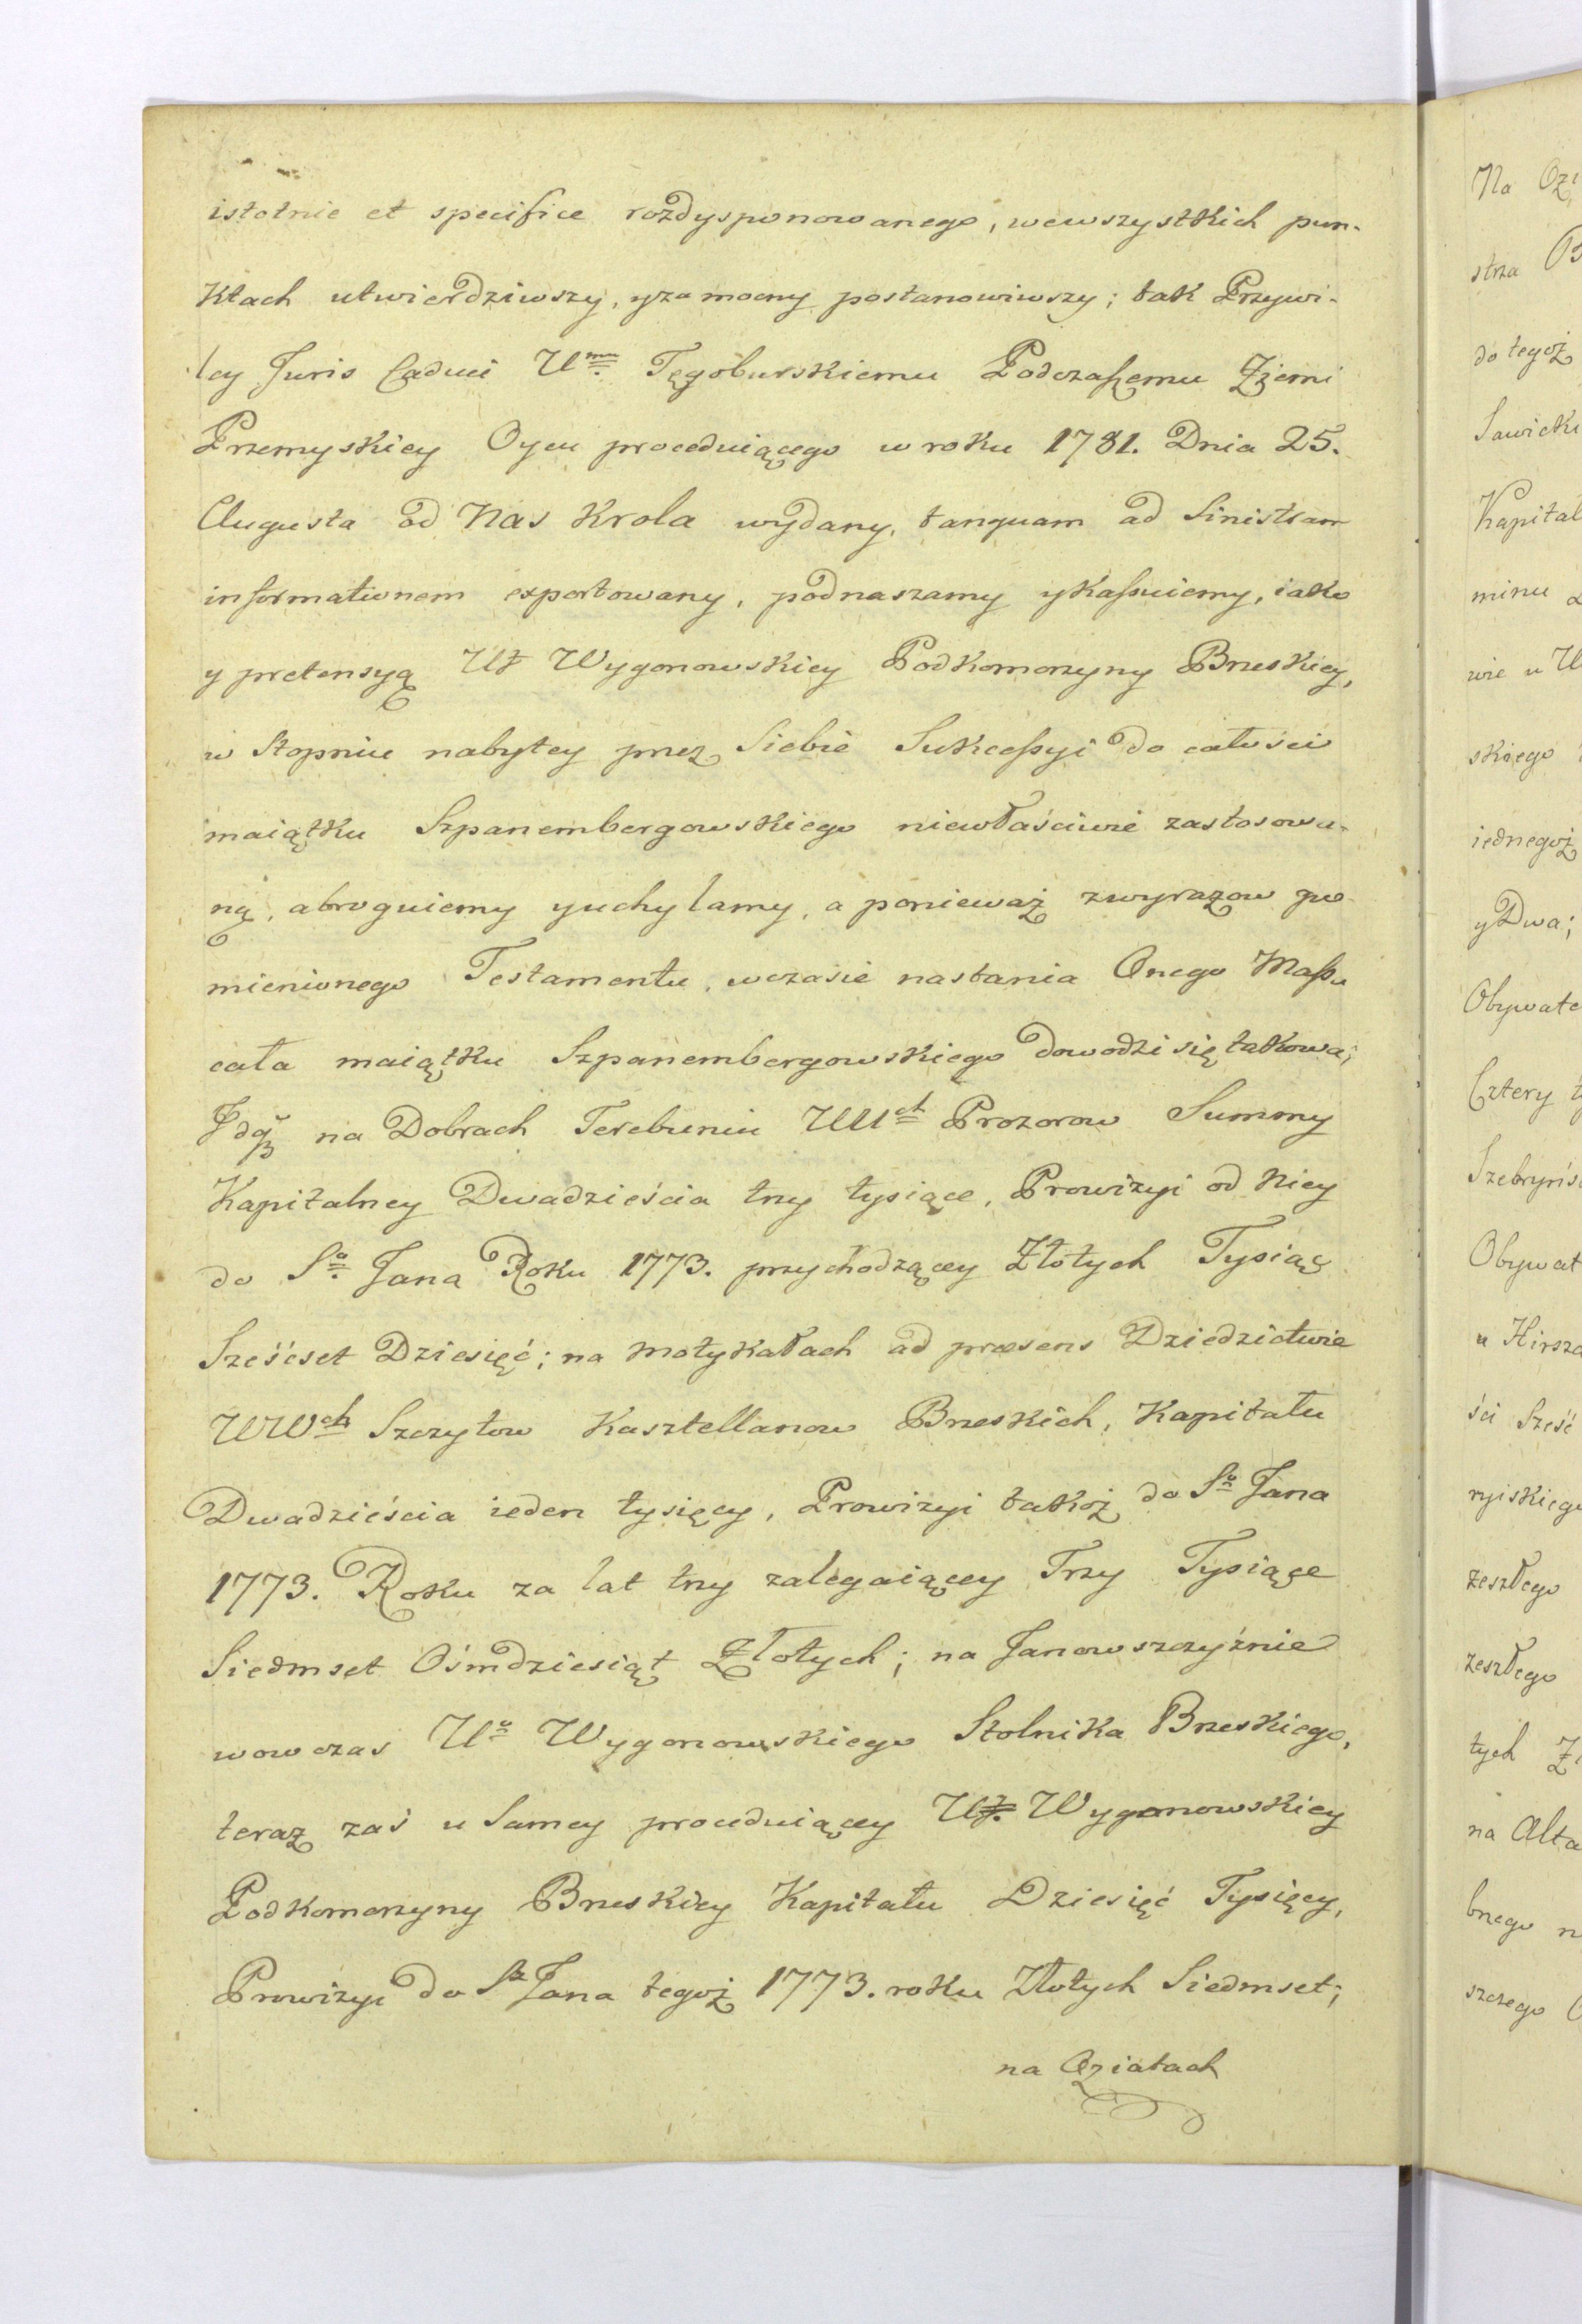 istotnie et specifice rozdysponowanego, wewszystkich pun-
ktach utwierdziwszy, yza mocny postanowiwszy; tak Przywi-
ley Juris Caduci Umu Tęgoburskiemu Podczaszemu Ziemi
Przemyskiey Oycu proceduiącego w roku 1781. Dnia 25.
Augusta od Nas Krola wydany, tanquam ad Sinistram
informationem exportowany, podnaszamy ykassuiemy, iako
y pretensyą UŻ Wygonowskiey Podkomorzyny Brzeskiey,
w Stopniu nabytey przez Siebie Sukcessyi do całości
maiątku Szpanembergowskiego niewłaściwie zastosowa-
ną, abroguiemy yuchylamy, a ponieważ zwyrazow po-
mienionego Testamentu, wczasie nastania Onego Massa
cała maiątku Szpanembergowskiego dowodzi się takowa;
Jdq3 na Dobrach Terebuniu UUch Prozorow Summy
Kapitalney Dwadzieścia trzy tysiące, Prowizyi od Niey
do So. Jana Roku 1773. przychodzącey Złotych Tysiąc
Sześćset Dziesięć; na Motykałach ad præsens Dziedzictwie
WWch Szczytow Kasztellanow Brzeskich, Kapitału
Dwadzieścia ieden tysięcy, Prowizyi takoż do So Jana
1773. Roku za lat trzy zalegaiącey Trzy Tysiące
Siedmset Ośmdziesiąt Złotych; na Janowszczyźnie
wowczas Uo Wygonowskiego Stolnika Brzeskiego,
teraz zaś u Samey proceduiącey UŻ. Wygonowskiey
Podkomorzyny Brzeskiey Kapitału Dziesięć Tysięcy,
Prowizyi do S Jana tegoż 1773. roku Złotych Siedmset;
na Oziatach
Na Ozi
strza
do tegoż
Sawicki
Kapitał
minu
wie u
skiego
iednegoż
y Dwa;
Obywate
Cztery
Obywat
u Hirsza
ści Sześć
ryiskiego
zeszłego
zeszłego
tych
na Alta
szczego